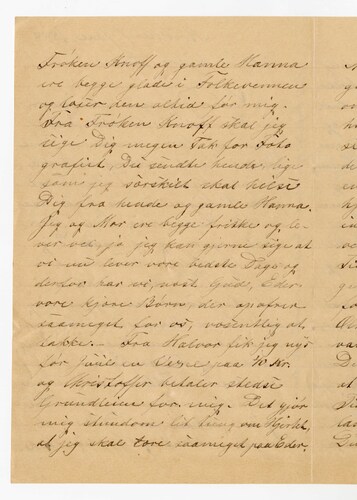 Frøken Knoff og gamle Hanna
ere begge glade i Folkevennen
og læser den altid før mig.
Fra Frøken Knoff skal jeg
sige Dig megen Tak for Foto
grafiet, Du sendte hende, lige
som jeg særskilt skal hilse
Dig fra hende og gamle Hanna.
Jeg og Mor ere begge friske og le-
ver vel, ja jeg kan gjerne sige at
vi nu lever vore bedste Dage og
derfor har vi, næst Gud, Eder
vore kjære Børn, der opofrer
saameget for os, væsentlig at
takke. - Fra Halvor fik jeg nys
før juul en Vexel paa 40 Kr.
og Christoffer betaler stedse
Grundleien for mig. Det gjør
mig stundom lit tung om Hjertet,
at jeg skal tære saameget paa Eder.